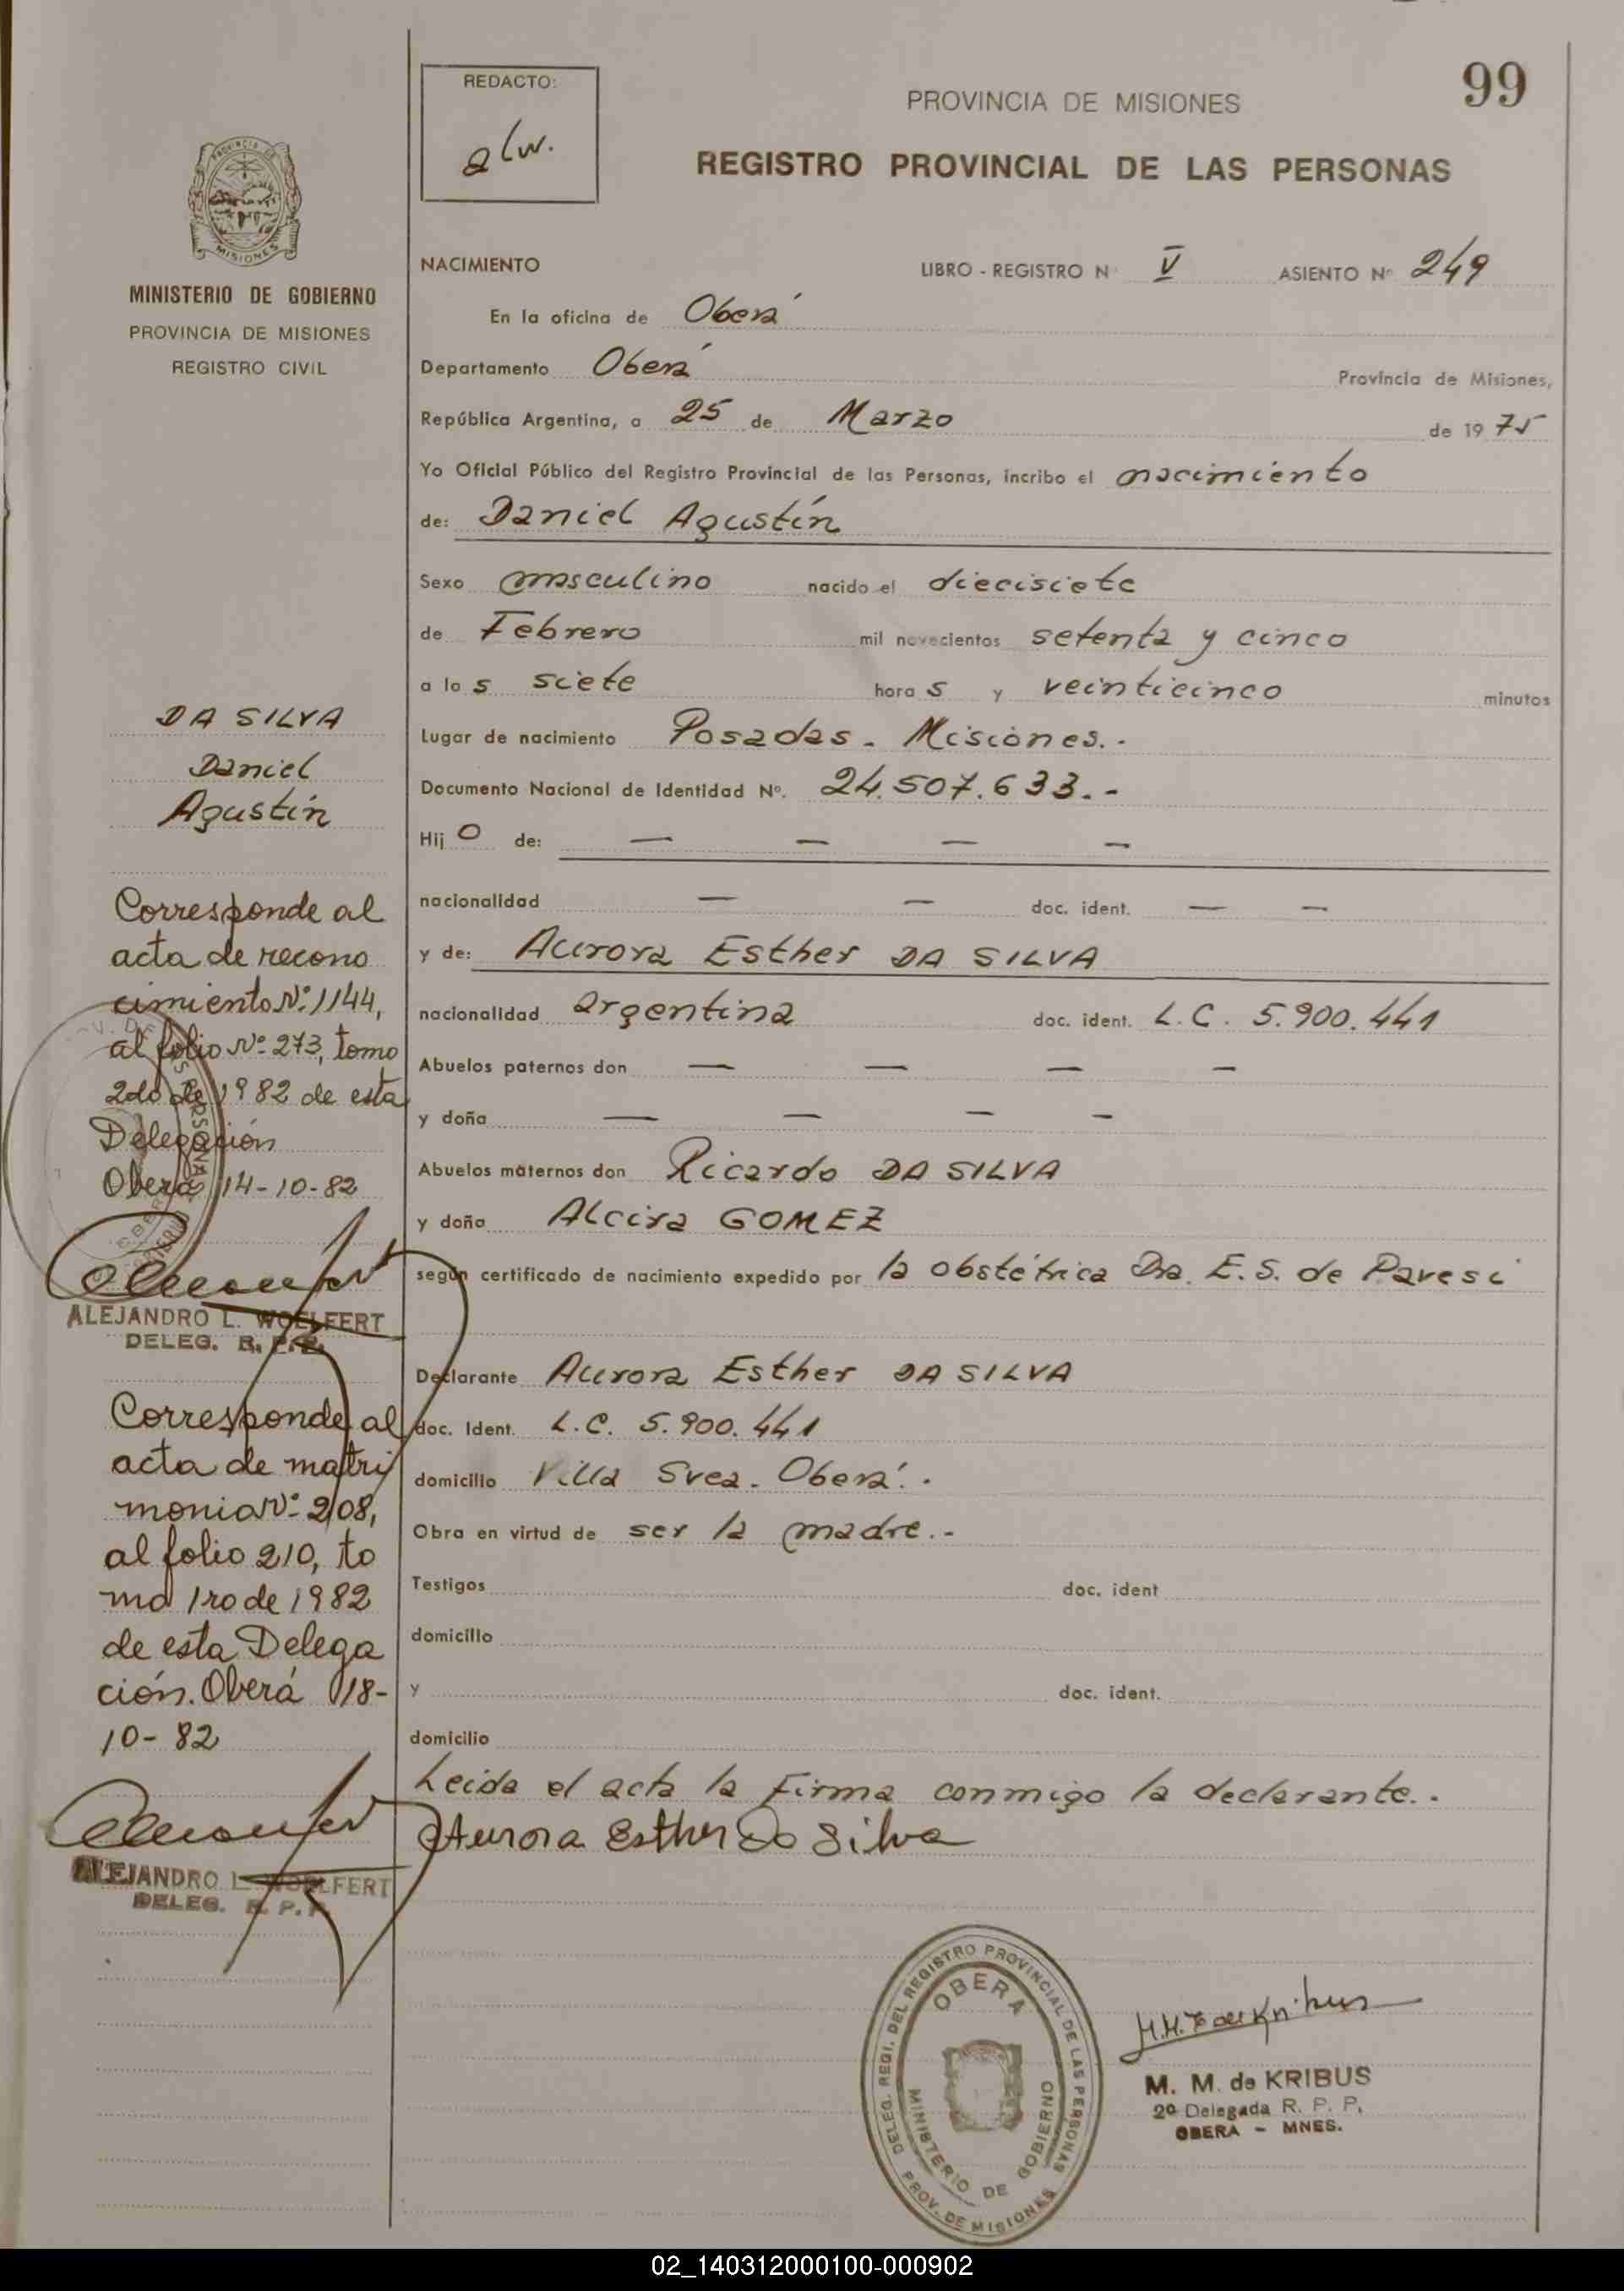 REDACTO:
alw.
PROVINCIA DE MISIONES
99
REGISTRO PROVINCIAL DE LAS PERSONAS
PROVINCIA DE
MISIONES
MINISTERIO DE GOBIERNO
PROVINCIA DE MISIONES
REGISTRO CIVIL
NACIMIENTO
LIBRO - REGISTRO N° V ASIENTO N° 249
En la oficina de Oberá
Departamento Oberá Provincia de Misiones,
República Argentina, a 25 de Marzo de 1975
Yo Oficial Público del Registro Provincial de las Personas, incribo el nacimiento
de: Daniel Agustín
Sexo masculino nacido el diecisiete
de Febrero mil novecientos setenta y cinco
a las siete horas y veinticinco minutos
Lugar de nacimiento Posadas - Misiones.-
Documento Nacional de Identidad N°. 24.507.633.-
Hijo de: — — — —
nacionalidad — — doc. ident. — —
y de: Aurora Esther DA SILVA
nacionalidad argentina doc. ident. L.C. 5.900.441
Abuelos paternos don — — — —
y doña — — — —
Abuelos maternos don Ricardo DA SILVA
y doña Alcira GOMEZ
según certificado de nacimiento expedido por la obstétrica Dra. E.S. de Pavesi
Declarante Aurora Esther DA SILVA
doc. Ident. L.C. 5.900.441
domicilio Villa Svea - Oberá.-
Obra en virtud de ser la madre.-
Testigos doc. ident
domicilio
y doc. ident.
domicilio
Leida el acta la firma conmigo la declarante.-
Aurora Esther Da Silva
DA SILVA
Daniel
Agustín
Corresponde al
acta de recono
cimiento N° 1144,
al folio N° 273, tomo
2do de 1982 de esta
Delegación
Oberá 14-10-82
ALEJANDRO L. WOELFERT
DELEG. R. P. P.
Corresponde al
acta de matri
monio N° 208,
al folio 210, to
mo 1ro de 1982
de esta Delega
ción. Oberá 18-
10-82
ALEJANDRO L. WOELFERT
DELEG. R. P. P.
DELEG. REGI. DEL REGISTRO PROVINCIAL DE LAS PERSONAS
OBERA
MINISTERIO DE GOBIERNO
PROV. DE MISIONES
M. M. de KRIBUS
2º Delegada R. P. P.
OBERA - MNES.
02_140312000100-000902